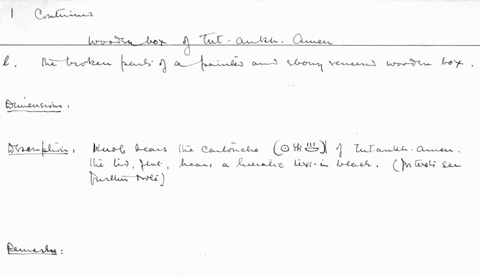 1 Continued
Wooden box of Tut-ankh-Amen
The broken parts of a painted and ebony veneered wooden box.
Dimensions.
Description. Knob bears the cartouche of Tutankh-amen.
The lid, flat, bears a hieratic text in black. (for texts see
further notes)
Remarks: